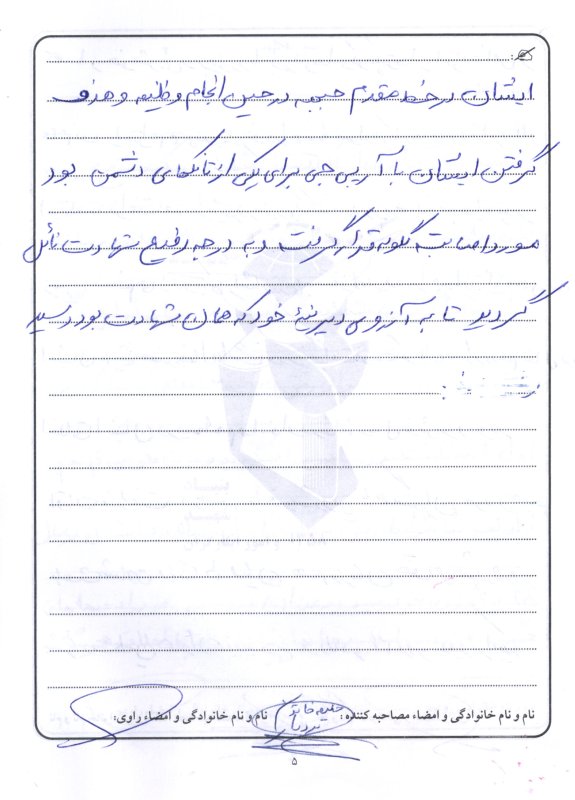 ایشان در خط مقدم جبهه در حین انجام وظیفه و هدف
گرفتن ایشان با آر پی جی برای یکی از تانکهای دشمن بود
مورد اصابت گلوله قرار گرفت و به درجه رفیع شهادت نائل
گردید تا به آرزوی دیرینهٔ خود که همان شهادت بود رسید
نام و نام خانوادگی و امضاء مصاحبه کننده:
نام و نام خانوادگی و امضاء راوی:
۵